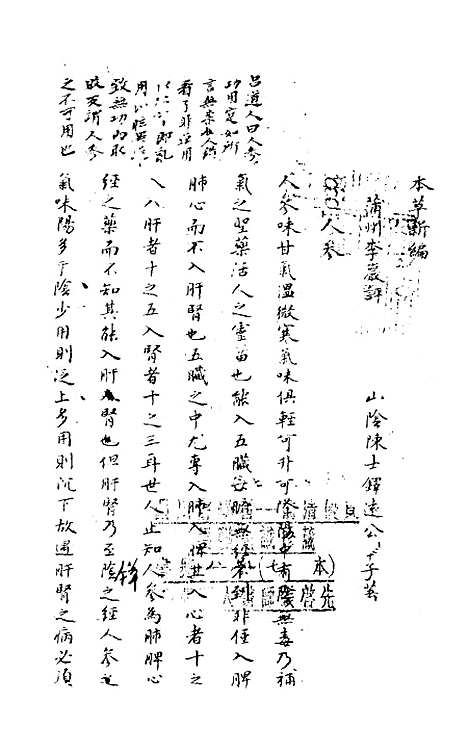 本草新編
蒲州李巖評 山陰陳士鐸遠公
人參
人參味甘氣溫微寒氣味俱輕可升可降陽中有陰無毒乃補
氣之聖藥活人之靈苗也能入五臟六腑無經不到非僅入脾
肺心而不入肝腎也五臟之中尤專入肺入脾其入心者十之
八入肝者十之五入腎者十之三耳世人止知人參為肺脾心
經之藥而不知其能入肝腎也但肝腎乃至陰之經人參
氣味陽多于陰少用則泛上多用則沉下故遇肝腎之病必須
呂道人曰人參
功用實如所
言無柰世人
看了非
用以
致無功而取
敗反謂人參
之不可用也